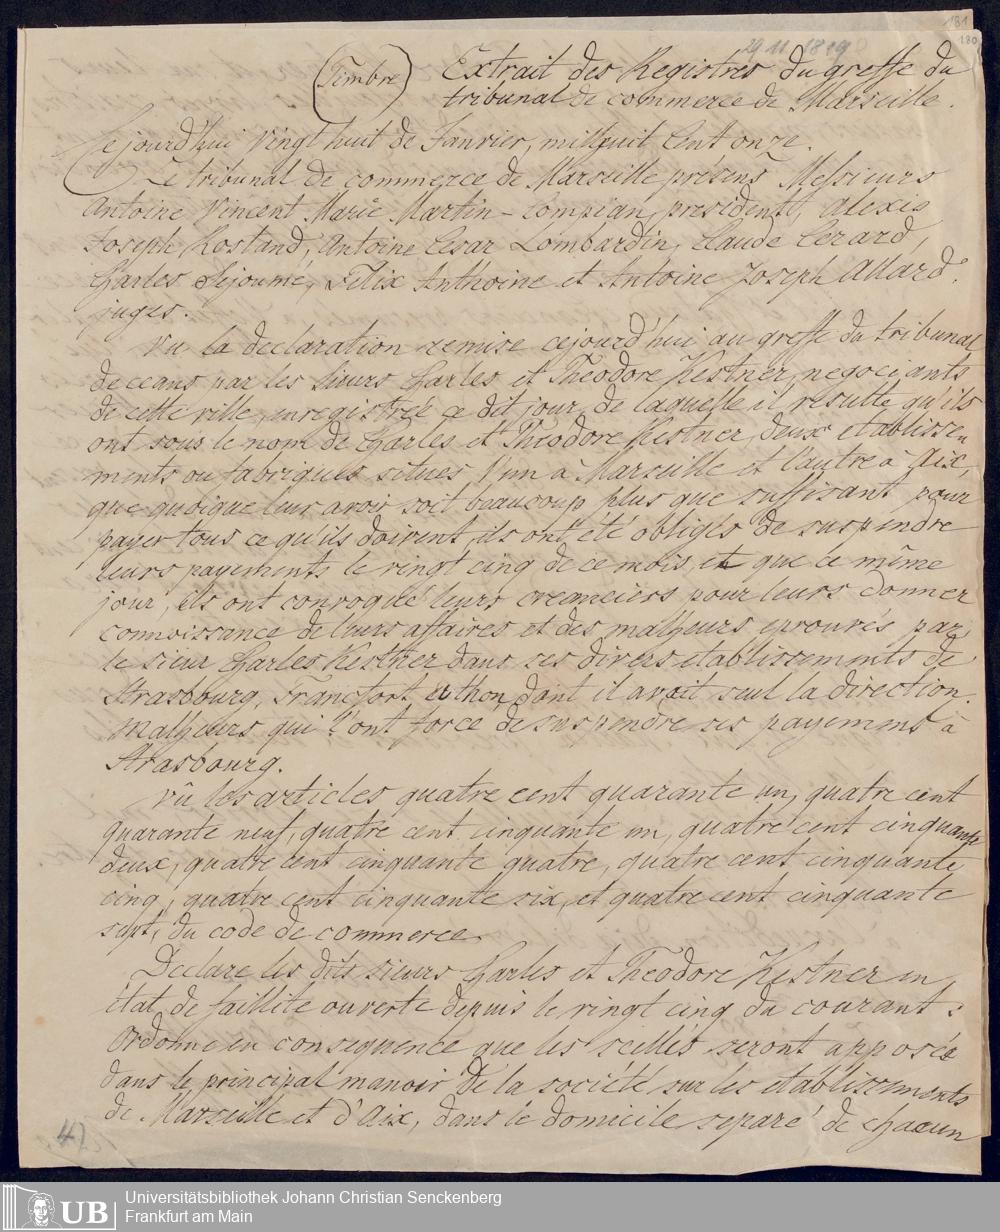 181
180
29 11. 1819
(Timbre) Extrait des Registres du greffe du
tribunal de commerce de Marseille.
Cejourd'hui vingt huit de Janvier, mille huit Cent onze.
Le tribunal de commerce de Marseille présens Messieurs
Antoine Vincent Marie Martin - Compian, president, Alexis
Joseph Rostand, Antoine Cesar Lombardin, Claude Cerard
Charles Sejourné, Felix Anthoine et Antoine Joseph Allard.
juges.
Vu la declaration remise cejourd'hui au greffe du tribunal
de ceans par les sieurs Charles et Theodore Kestner, negociants
de cette ville, enregistrée ce dit jour, de laquelle il resulte qu'ils
ont sous le nom de Charles et Theodore Kestner, deux etablisse
ments ou fabriques situes l'un à Marseille et l'autre à Aix
que quoique leur avoir soit beaucoup plus que suffisant pour
payer tous ce qu'ils doivent, ils ont été obligés de suspendre
leurs payements le vingt cinq de ce mois, et que ce même
jour, ils ont convoqué leurs creanciers pour leurs donner
connoissance de leurs affaires et des malheurs eprouvés par
le sieur Charles Kesther dans ses divers etablissements de
Strasbourg, Francfort, et thon dont il avoit seul la direction.
malheurs qui l'ont force de suspendre ses payements à
Strasbourg.
vû les articles quatre cent quarante un, quatre cent
quarante neuf, quatre cent cinquante un, quatre cent cinquante
deux, quatre cent cinquante quatre, quatre cent cinquante
cinq, quatre cent cinquante six, et quatre cent cinquante
sept, du code de commerce.
Déclare les dits sieurs Charles et Theodore Kestner en
état de faillite ouverte depuis le vingt cinq du courant:
Ordonne en consequence que les scellés seront apposés
dans le principal manoir de la société sur les etablissements
de Marseille et d'Aix, dans le domicile separé de chacun
47
UB
Universitätsbibliothek Johann Christian Senckenberg
Frankfurt am Main